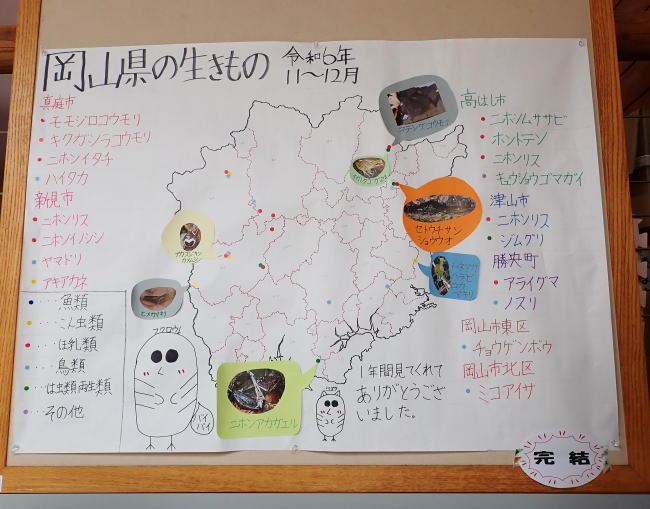 岡山県の生きもの
令和6年
11〜12月
真庭市
モモジロコウモリ
キクガシラコウモリ
ニホンイタチ
ハイタカ
新見市
ニホンリス
ニホンイノシシ
ヤマドリ
アキアカネ
・・・魚類
・・・こん虫類
・・・ほ乳類
・・・鳥類
・・・は虫類両生類
・・・その他
フクロウ
バイバイ
ヒメカマキリ
テングコウモリ
セトウチサン
ショウウオ
ニホンアカガエル
1年間見てくれて
ありがとうござ
いました。
高はし市
ニホンムササビ
ホンドテン
ニホンリス
キョウショウゴマガイ
津山市
ニホンリス
ジムグリ
勝央町
アライグマ
ノスリ
岡山市東区
チョウゲンボウ
岡山市北区
ミコアイサ
完結